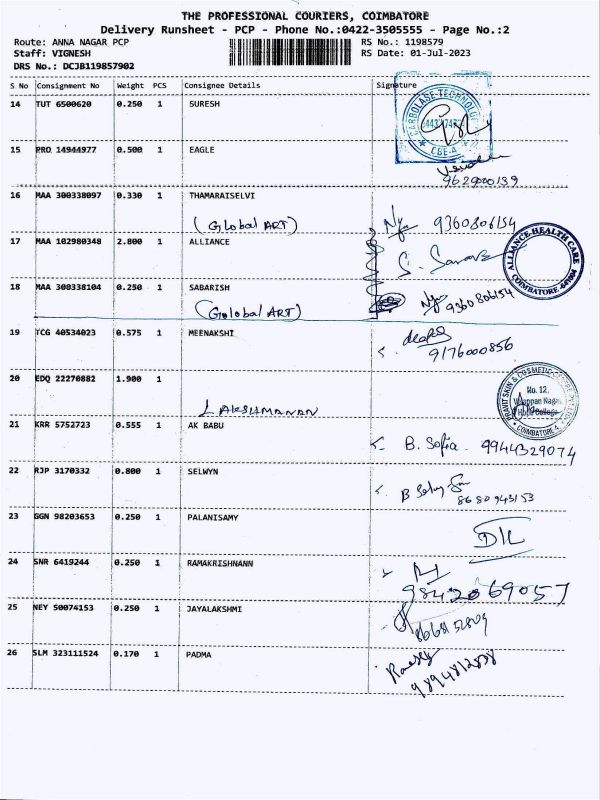 THE PROFESSIONAL COURIERS, COIMBATORE
Delivery Runsheet - PCP - Phone No.:0422-3505555 - Page No.:2
Route: ANNA NAGAR PCP RS No.: 1198579
Staff: VIGNESH RS Date: 01-Jul-2023
DRS No.: DCJB119857902
S No Consignment No Weight PCS Consignee Details Signature
14 TUT 6500620 0.250 1 SURESH
CBE-4
15 PRO 14944977 0.500 1 EAGLE
16 MAA 300338097 0.330 1 THAMARAISELVI
(Global ART) 9360806154
17 MAA 102980348 2.800 1 ALLIANCE
ALLIANCE HEALTH CARE
COIMBATORE - 641004
18 MAA 300338104 0.250 1 SABARISH
(Golobal ART) 9360806154
19 TCG 40534023 0.575 1 MEENAKSHI
9176000856
20 EDQ 22270882 1.900 1
LAKSHMANAN
No. 12,
COIMBATORE-4
21 KRR 5752723 0.555 1 AK BABU
B. Sofia 9944329074
22 RJP 3170332 0.800 1 SELWYN
8680943153
23 GGN 98203653 0.250 1 PALANISAMY
D/L
24 SNR 6419244 0.250 1 RAMAKRISHNANN
9842069057
25 NEY 50074153 0.250 1 JAYALAKSHMI
26 SLM 323111524 0.170 1 PADMA